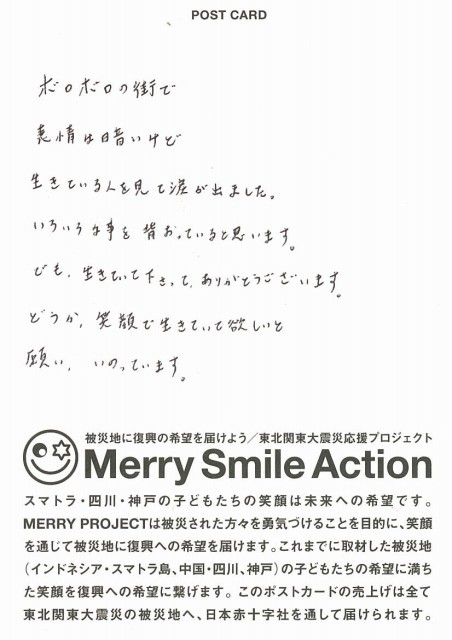 POST CARD
ボロボロの街で
表情は暗いけど
生きている人を見て涙が出ました。
いろいろな事を背おっていると思います。
でも、生きていて下さって、ありがとうございます。
どうか、笑顔で生きていて欲しいと
願い、いのっています。
被災地に復興の希望を届けよう/東北関東大震災応援プロジェクト
Merry Smile Action
スマトラ・四川・神戸の子どもたちの笑顔は未来への希望です。
MERRY PROJECTは被災された方々を勇気づけることを目的に、笑顔
を通じて被災地に復興への希望を届けます。これまでに取材した被災地
(インドネシア・スマトラ島、中国・四川、神戸)の子どもたちの希望に満ち
た笑顔を復興への希望に繋げます。このポストカードの売上げは全て
東北関東大震災の被災地へ、日本赤十字社を通して届けられます。